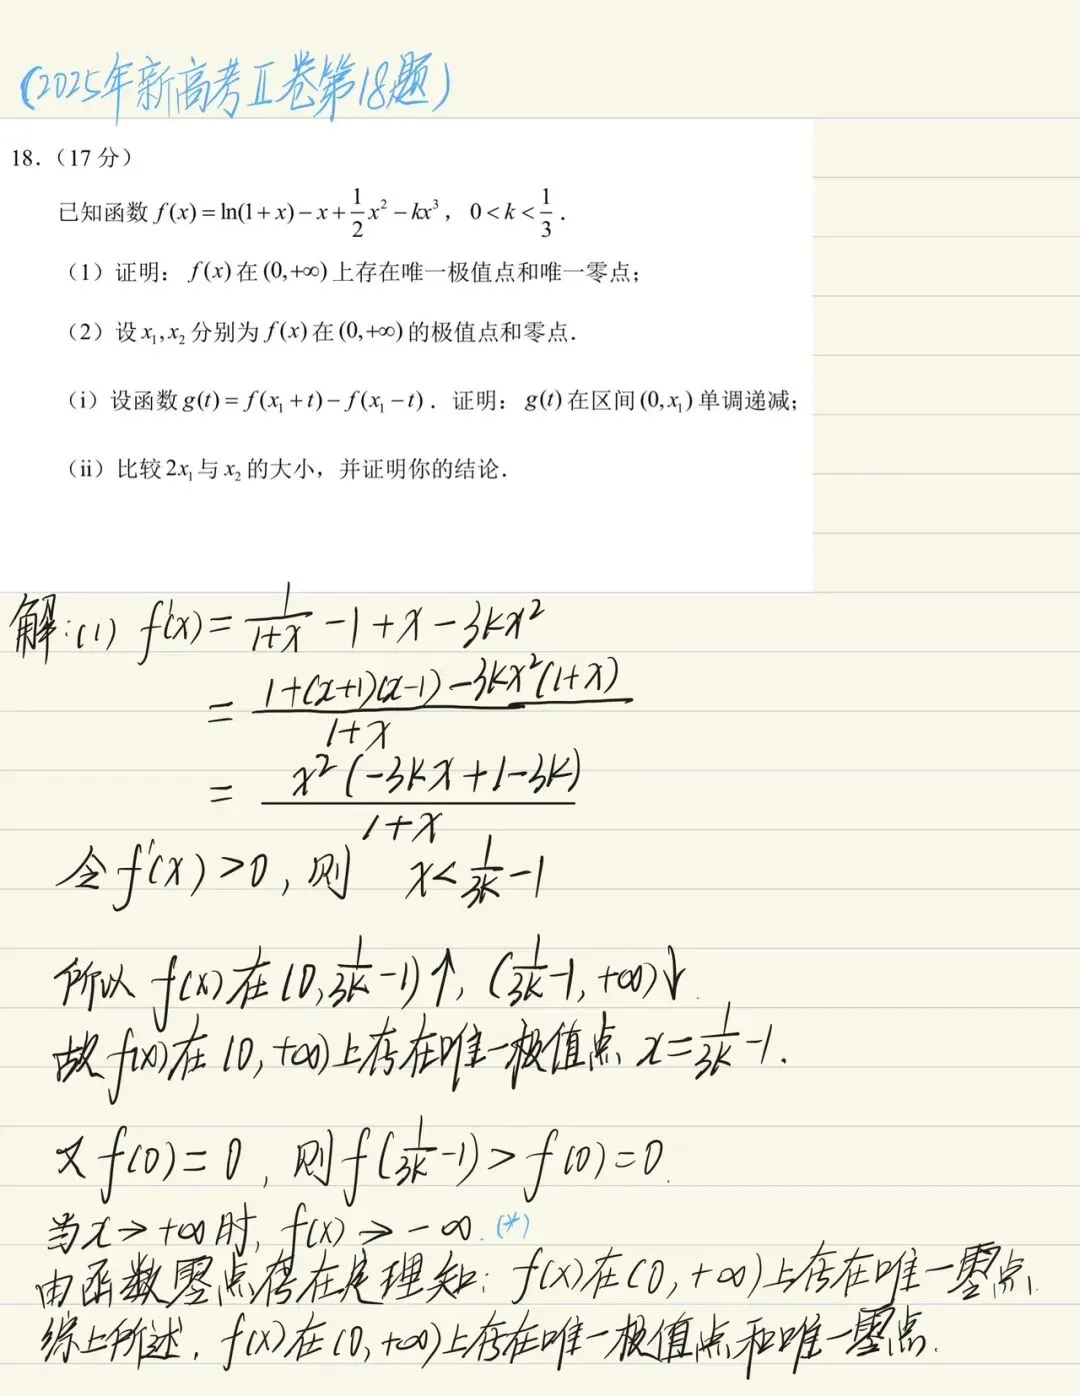 （2025年新高考Ⅱ卷第18题）
18.（17 分）
已知函数 f(x) = ln(1+x) − x + 1/2 x² − kx³，0 < k < 1/3．
（1）证明：f(x) 在 (0,+∞) 上存在唯一极值点和唯一零点；
（2）设 x₁, x₂ 分别为 f(x) 在 (0,+∞) 的极值点和零点．
（i）设函数 g(t) = f(x₁ + t) − f(x₁ − t)．证明：g(t) 在区间 (0, x₁) 单调递减；
（ii）比较 2x₁ 与 x₂ 的大小，并证明你的结论．
解：(1) f'(x) = 1/(1+x) − 1 + x − 3kx²
= (1+(x+1)(x−1)−3kx²(1+x))/(1+x)
= x²(−3kx+1−3k)/(1+x)
令 f'(x) > 0，则 x < 1/3k − 1
所以 f(x) 在 (0, 1/3k − 1)↑, (1/3k − 1, +∞)↓.
故 f(x) 在 (0, +∞) 上存在唯一极值点 x = 1/3k − 1.
又 f(0) = 0，则 f(1/3k − 1) > f(0) = 0.
当 x → +∞ 时, f(x) → −∞. (*)
由函数零点存在定理知：f(x) 在 (0, +∞) 上存在唯一零点.
综上所述，f(x) 在 (0, +∞) 上存在唯一极值点和唯一零点.